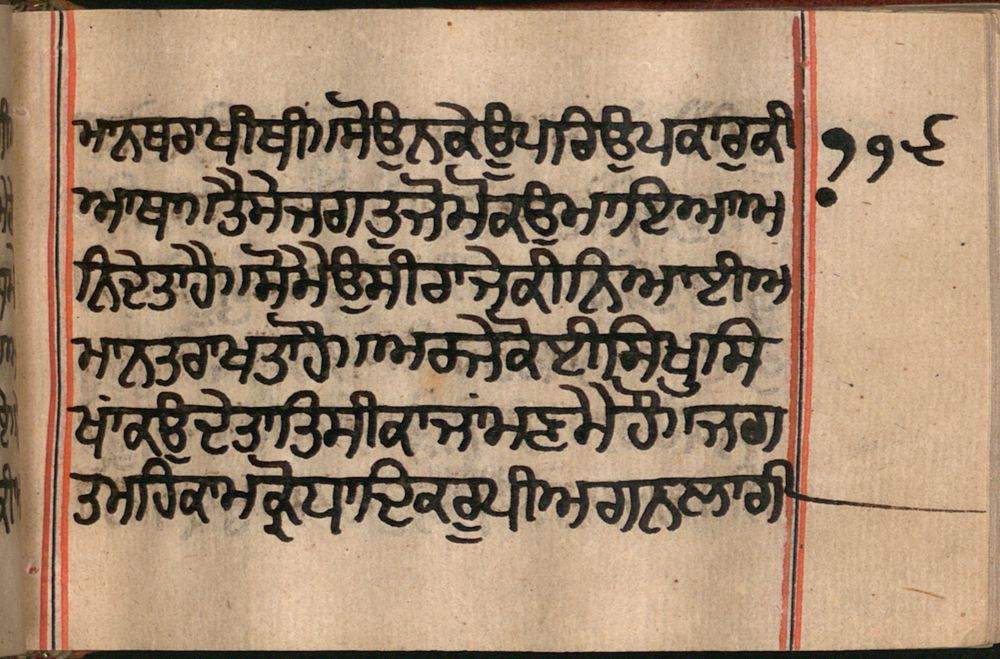 ਮਾਨਬਰਾਖੀਥੀ॥ਸੋਉਨਕੇਉਪਰਿਉਪਕਾਰੁਕੀ
ਆਥਾ॥ਤੈਸੇਜਗਤੁਜੋਮੋਕਉਮਾਇਆਅਮ
ਨਿਦੇਤਾਹੈ॥ਸੋਮੈਉਸੀਰਾਜੇਕੀਨਿਆਈਅ
ਮਾਨਤਰਾਖਤਾਹੌ॥ਅਰਜੇਕੋਈਸਿਖੁਸਿ
ਖਾਂਕਉਦੇਤਾਤਿਸੀਕਾਜਾਂਮਣਮੈਹੌ॥ਜਗ
ਤਮਹਿਕਾਮਕ੍ਰੋਧਾਦਿਕਰੂਪੀਅਗਨਲਾਗੀ
੧੧੬